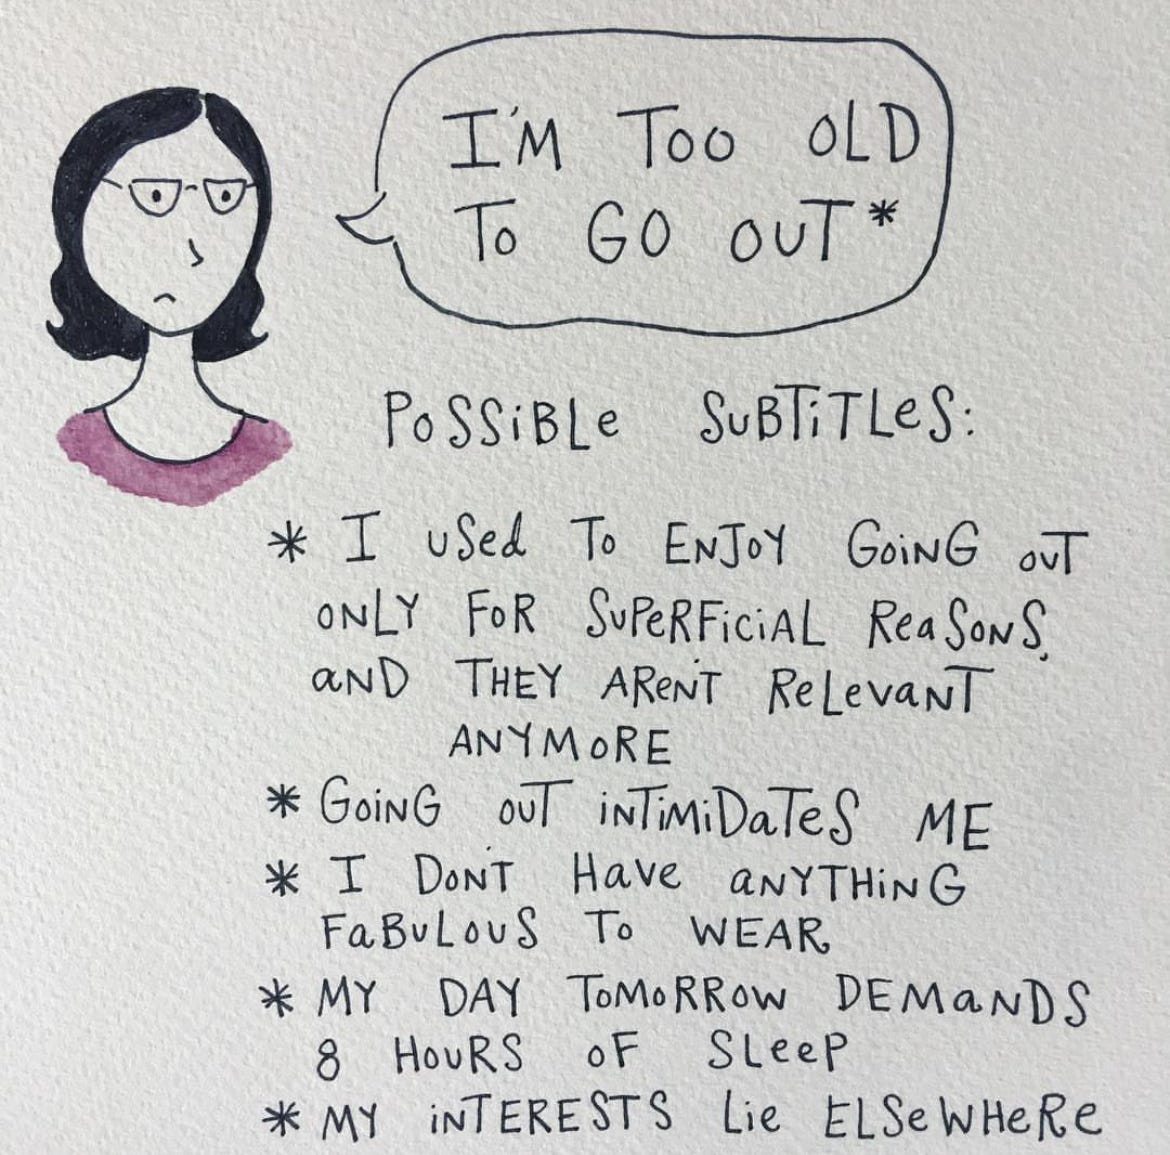 I'M TOO OLD
TO GO OUT*
POSSiBLe SuBTiTLeS:
* I uSed To ENJOY GoiNG ouT
ONLY FoR SuPeRFiCiAL ReaSoNS,
aND THEY AReN'T ReLevaNT
ANYMoRE
* GoiNG ouT iNTiMiDaTeS ME
* I DoN'T Have aNYTHiNG
FaBuLouS To WEAR
* MY DAY ToMoRRoW DEMaNDS
8 HouRS oF SLeeP
* MY iNTERESTS Lie ELSeWHeRe